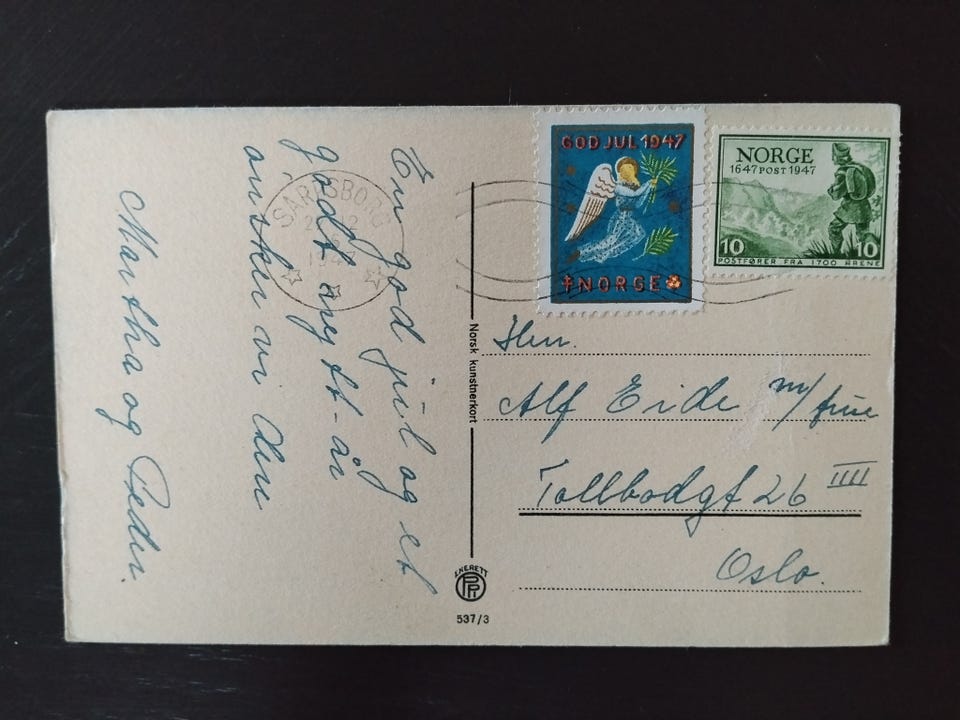 En god jul og et
godt nytt år
ønsker vi Dere
Martha og Peder.
SARPSBORG
GOD JUL 1947
NORGE
NORGE
1647 POST 1947
10 10
POSTFØRER FRA 1700 ÅRENE
Norsk kunstnerkort
Herr.
Alf Eide m/frue
Tollbodgt 26 IIII
Oslo.
ENERETT
537/3